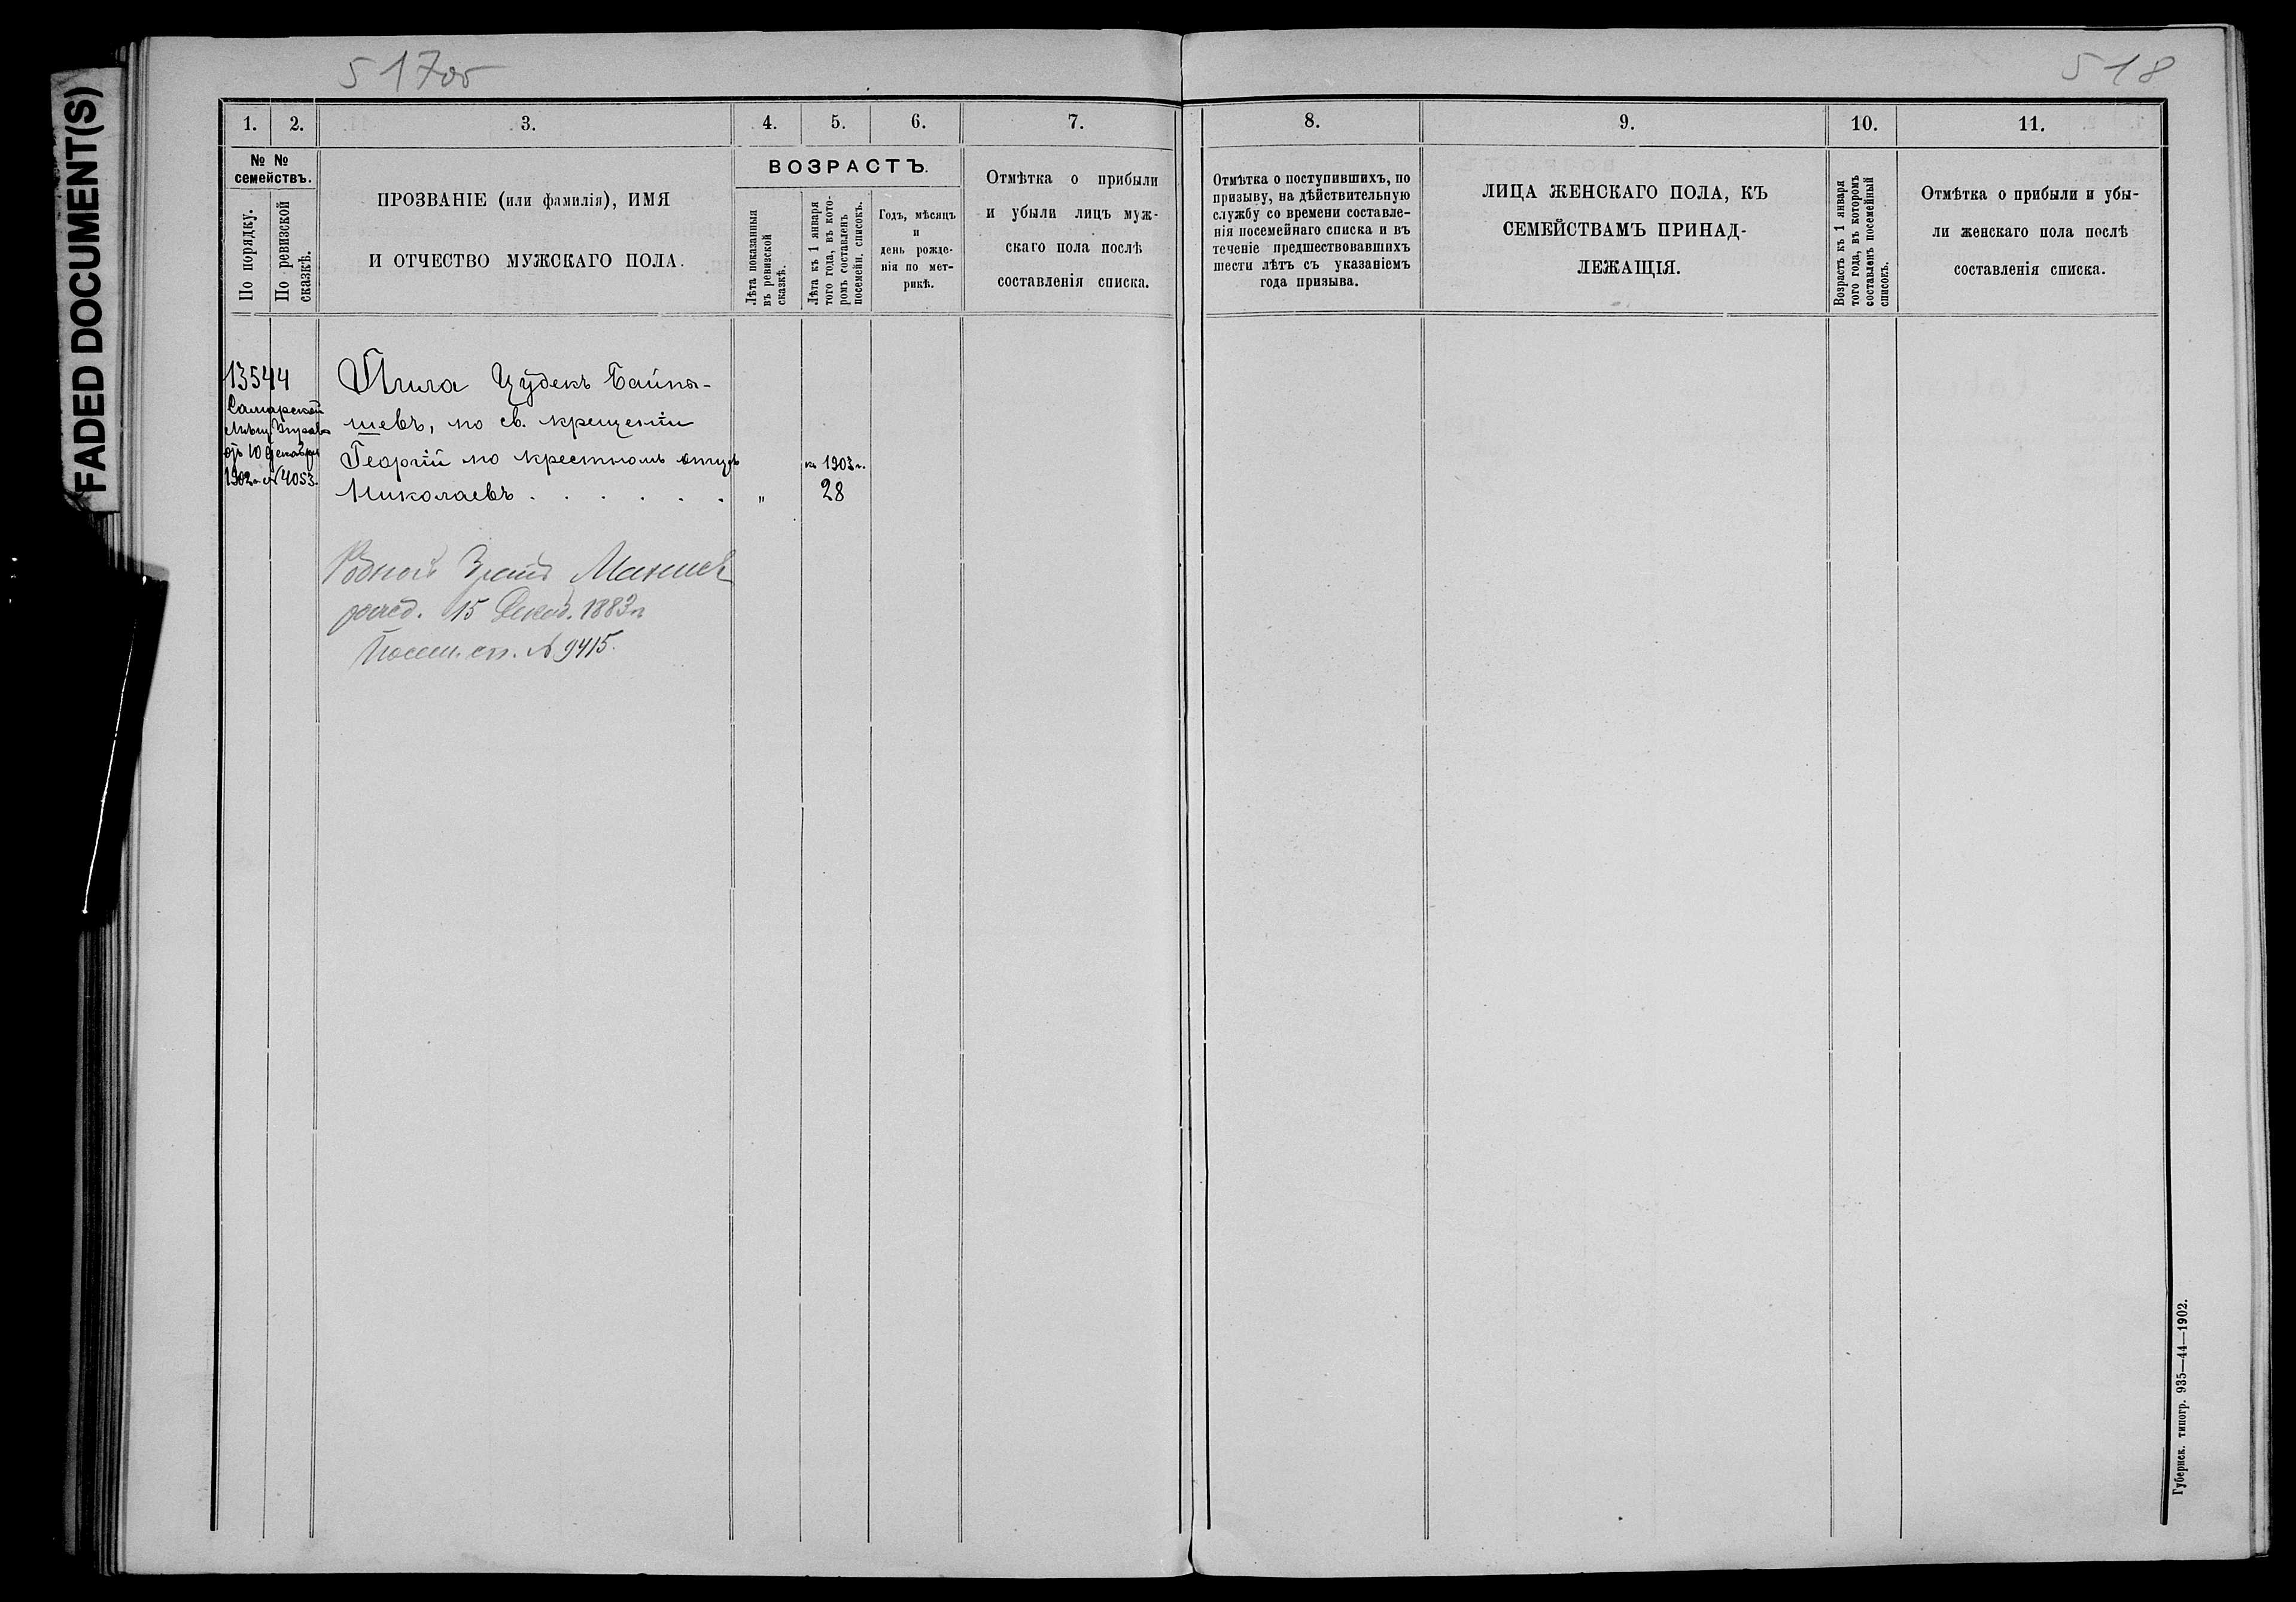 FADED DOCUMENT(S)
517об
518
1. 2. 3. 4. 5. 6. 7. 8. 9. 10. 11.
№ №
семействъ.
По порядку.
По ревизской
сказкѣ.
ПРОЗВАНІЕ (или фамилія), ИМЯ
И ОТЧЕСТВО МУЖСКАГО ПОЛА.
ВОЗРАСТЪ.
Лѣта показанныя
въ ревизской
сказкѣ.
Лѣта къ 1 января
того года, въ кото-
ромъ составленъ
посемейн. списокъ.
Годъ, мѣсяцъ
и
день рожде-
нія по мет-
рикѣ.
Отмѣтка о прибыли
и убыли лицъ муж-
скаго пола послѣ
составленія списка.
Отмѣтка о поступившихъ, по
призыву, на дѣйствительную
службу со времени составле-
нія посемейнаго списка и въ
теченіе предшествовавшихъ
шести лѣтъ съ указаніемъ
года призыва.
ЛИЦА ЖЕНСКАГО ПОЛА, КЪ
СЕМЕЙСТВАМЪ ПРИНАД-
ЛЕЖАЩІЯ.
Возрастъ къ 1 января
того года, въ которомъ
составленъ посемейный
списокъ.
Отмѣтка о прибыли и убы-
ли женскаго пола послѣ
составленія списка.
13544
Самарской
Мѣщ. Управы
отъ 10 декабря
1902 г. № 4053.
Пила Цудекъ Байны-
шевъ, по св. крещеніи
Георгій по крестномъ отцѣ
Николаевъ . . . . . . "
къ 1903 г.
28
Родной братъ
рожд. 15 Декаб. 1883 г.
Посем. сп. № 9415.
Губернск. типогр. 935—44—1902.